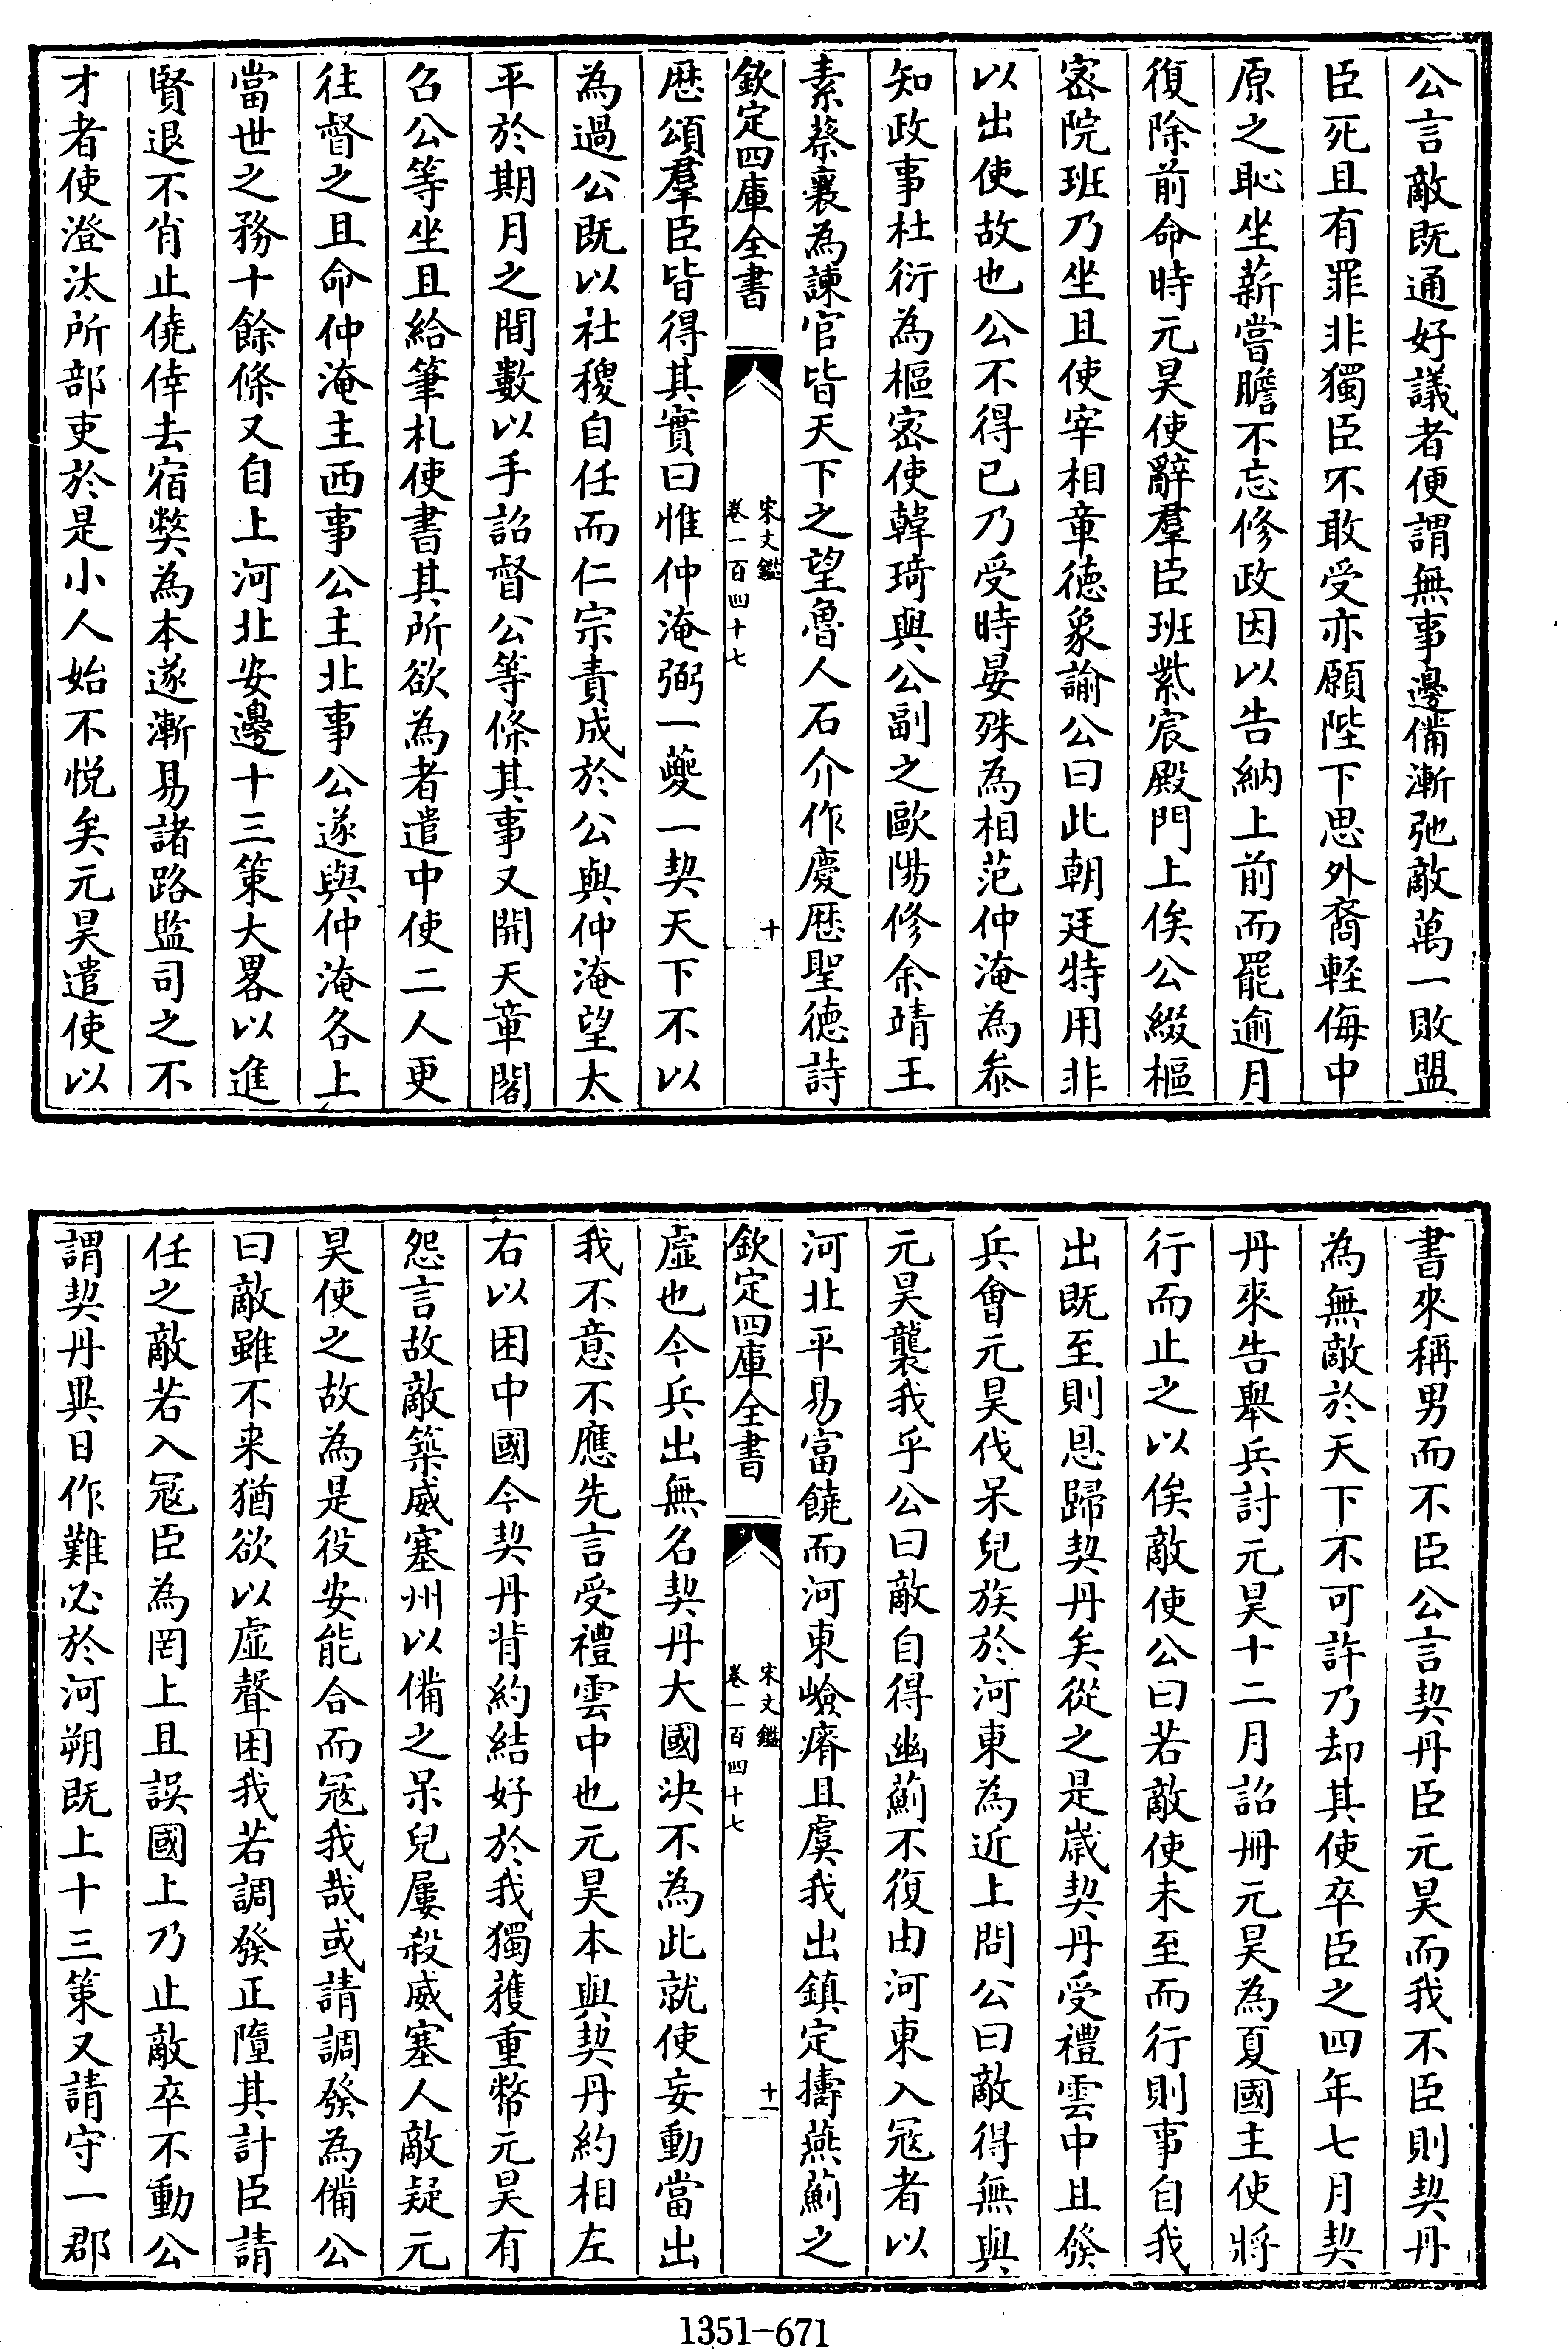 公言敵既通好議者便謂無事邊備漸弛敵萬一敗盟
臣死且有罪非獨臣不敢受亦願陛下思外裔輕侮中
原之恥坐薪嘗膽不忘修政因以告納上前而罷逾月
復除前命時元昊使辭羣臣班紫宸殿門上俟公綴樞
宻院班乃坐且使宰相章徳象諭公曰此朝廷特用非
以出使故也公不得已乃受時晏殊為相范仲淹為叅
知政事杜衍為樞宻使韓琦與公副之歐陽修余靖王
素蔡襄為諫官皆天下之望魯人石介作慶厯聖徳詩
欽定四庫全書
宋文鑑
卷一百四十七
十
厯頌羣臣皆得其實曰惟仲淹弼一夔一契天下不以
為過公既以社稷自任而仁宗責成於公與仲淹望太
平於期月之間數以手詔督公等條其事又開天章閣
召公等坐且給筆札使書其所欲為者遣中使二人更
往督之且命仲淹主西事公主北事公遂與仲淹各上
當世之務十餘條又自上河北安邊十三策大畧以進
賢退不肖止僥倖去宿獘為本遂漸易諸路監司之不
才者使澄汰所部吏於是小人始不悦矣元昊遣使以
書來稱男而不臣公言契丹臣元昊而我不臣則契丹
為無敵於天下不可許乃却其使卒臣之四年七月契
丹來告舉兵討元昊十二月詔冊元昊為夏國主使將
行而止之以俟敵使公曰若敵使未至而行則事自我
出既至則恩歸契丹矣從之是歲契丹受禮雲中且發
兵會元昊伐呆兒族於河東為近上問公曰敵得無與
元昊襲我乎公曰敵自得幽薊不復由河東入冦者以
河北平易富饒而河東嶮瘠且虞我出鎮定擣燕薊之
欽定四庫全書
宋文鑑
卷一百四十七
十一
虛也今兵出無名契丹大國決不為此就使妄動當出
我不意不應先言受禮雲中也元昊本與契丹約相左
右以困中國今契丹背約結好於我獨獲重幣元昊有
怨言故敵築威塞州以備之呆兒屢殺威塞人敵疑元
昊使之故為是役安能合而冦我哉或請調發為備公
曰敵雖不来猶欲以虛聲困我若調發正墮其計臣請
任之敵若入冦臣為罔上且誤國上乃止敵卒不動公
謂契丹異日作難必於河朔既上十三策又請守一郡
1351—671